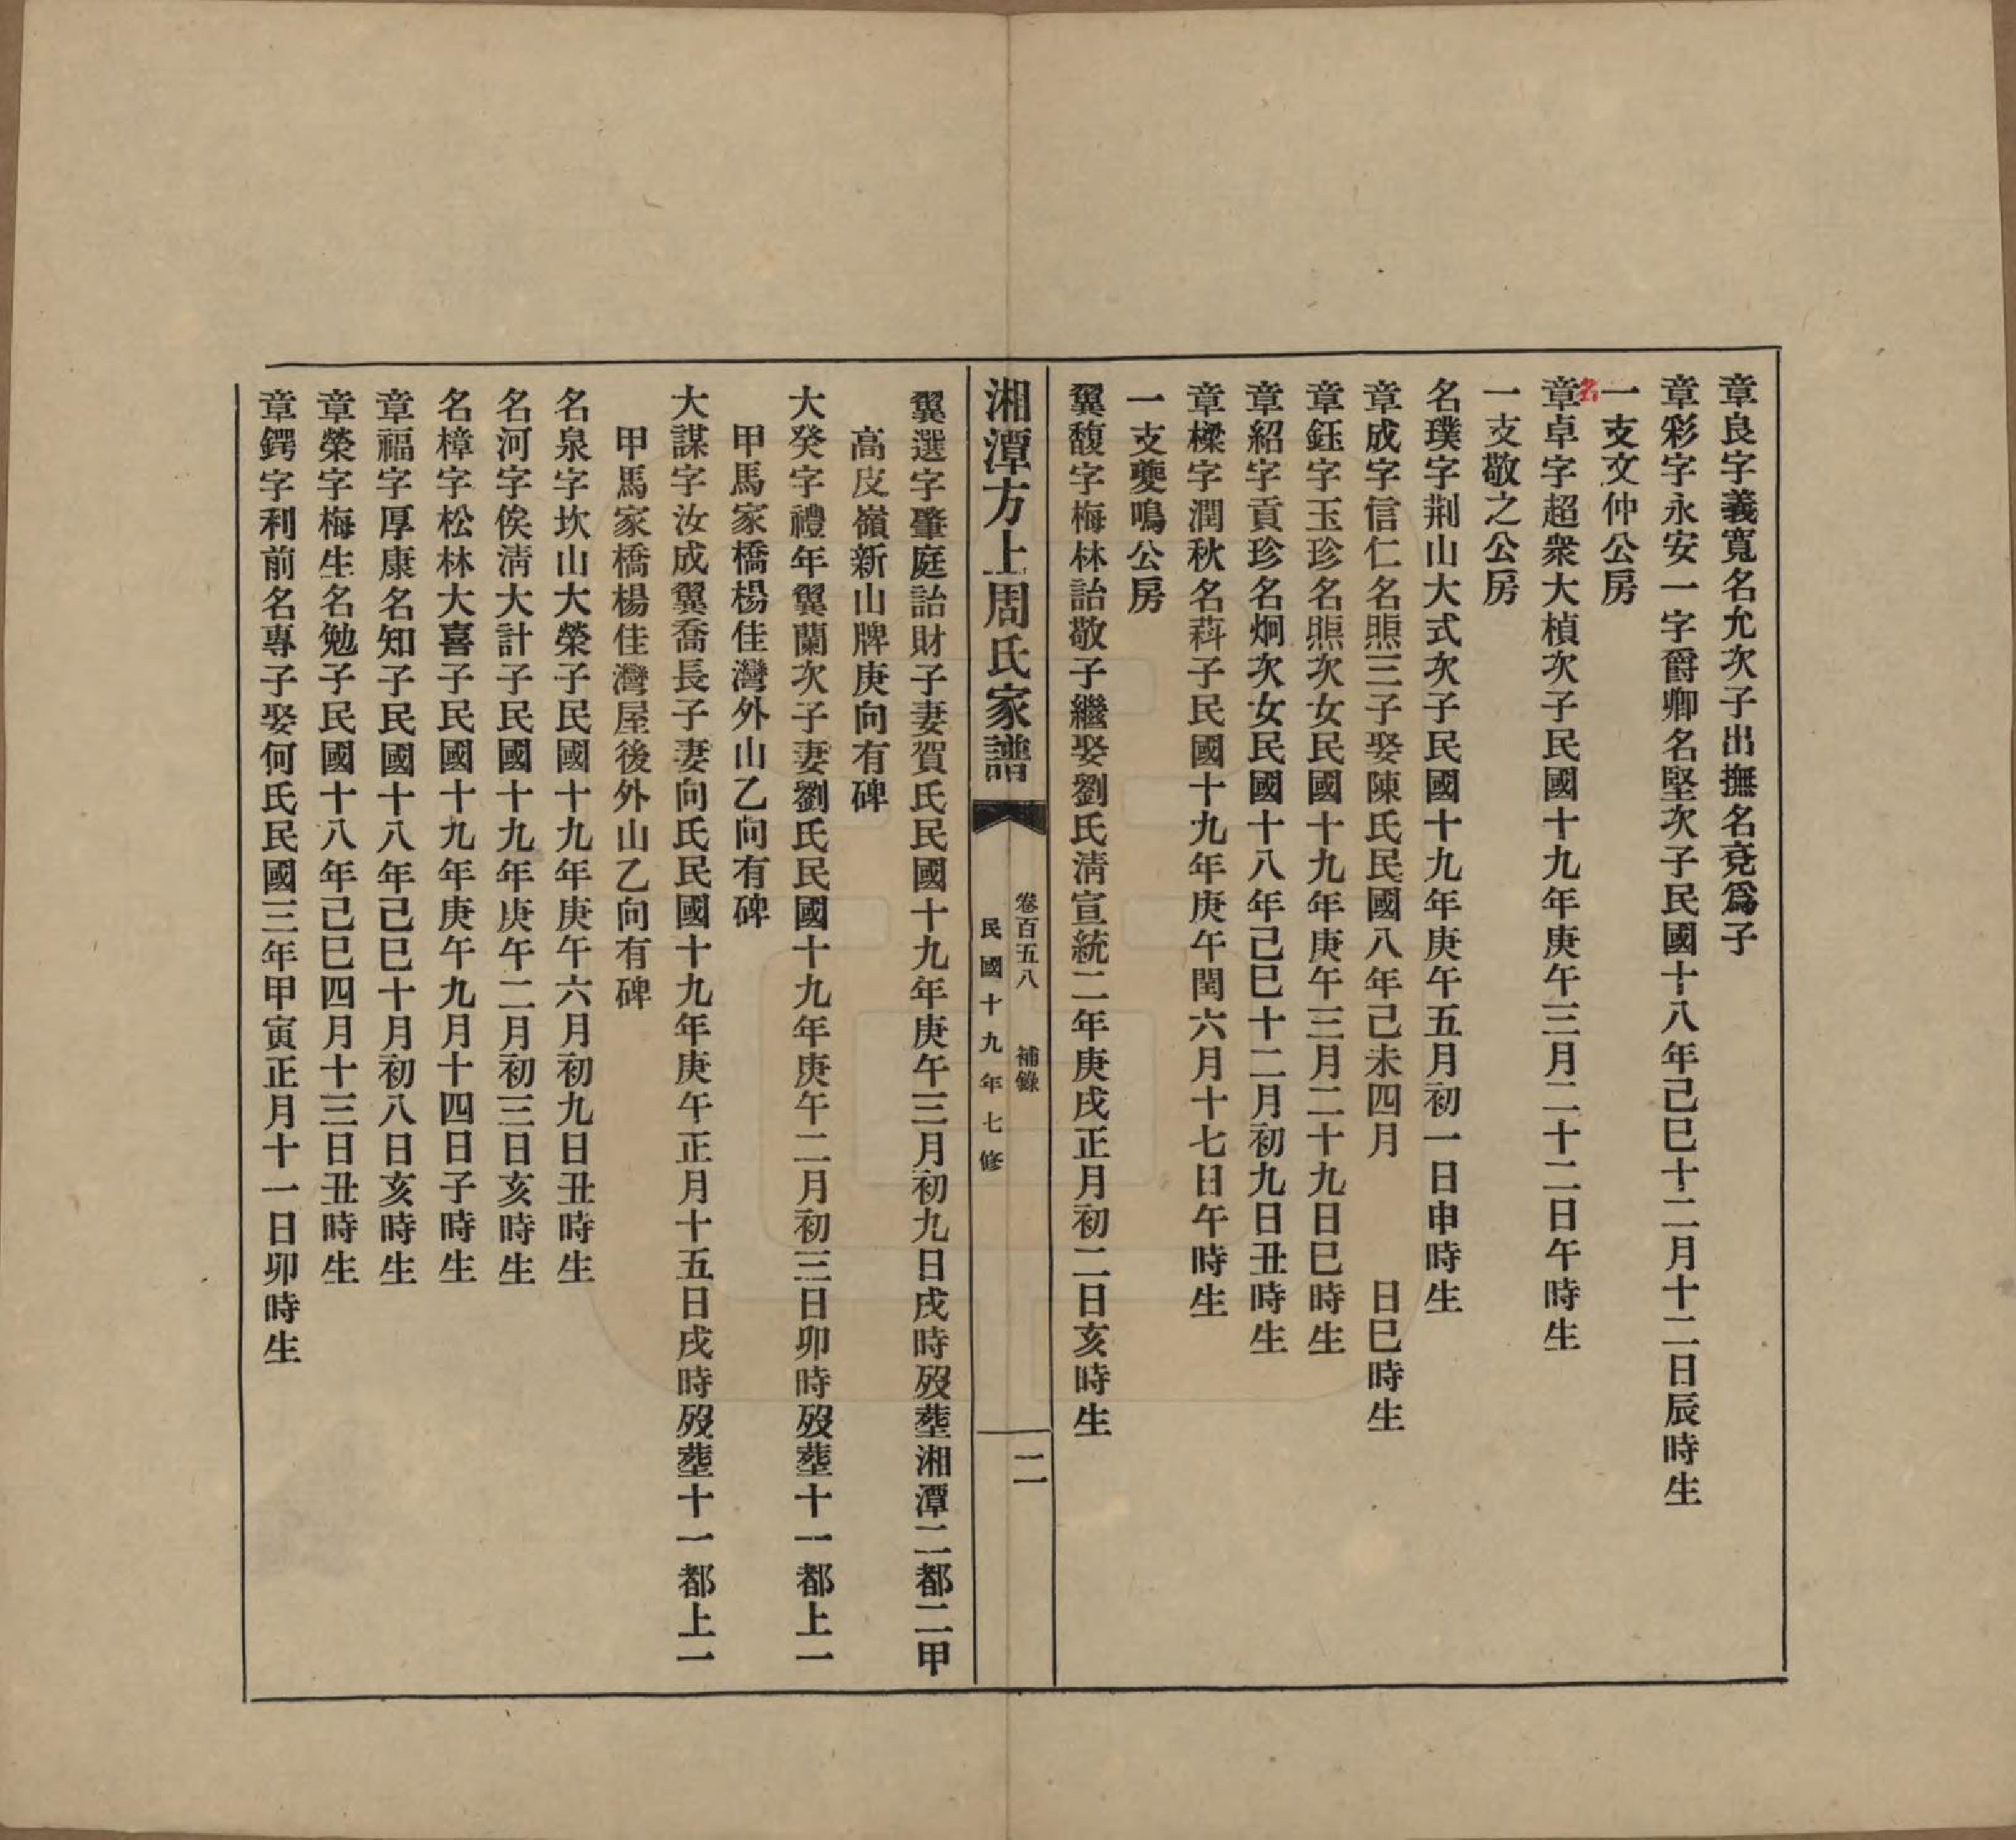 章良字義寬名允次子出撫名亮爲子
章彩字永安一字爵卿名堅次子民國十八年己巳十二月十二日辰時生
一支文仲公房
章卓字超衆大楨次子民國十九年庚午三月二十二日午時生
名
一支敬之公房
名璞字荆山大式次子民國十九年庚午五月初一日申時生
章成字信仁名煦三子娶陳氏民國八年己未四月　　　日巳時生
章鈺字玉珍名煦次女民國十九年庚午三月二十九日巳時生
章紹字貢珍名炯次女民國十八年己巳十二月初九日丑時生
章樑字潤秋名萪子民國十九年庚午閏六月十七日午時生
一支夔鳴公房
翼馥字梅林詒敬子繼娶劉氏淸宣統二年庚戌正月初二日亥時生
湘潭方上周氏家譜
卷百五八　補錄
民國十九年七修
二
翼選字肇庭詒財子妻賀氏民國十九年庚午三月初九日戌時歿塟湘潭二都二甲
高皮嶺新山牌庚向有碑
大癸字禮年翼蘭次子妻劉氏民國十九年庚午二月初三日卯時歿塟十一都上一
甲馬家橋楊佳灣外山乙向有碑
大謀字汝成翼喬長子妻向氏民國十九年庚午正月十五日戌時歿塟十一都上一
甲馬家橋楊佳灣屋後外山乙向有碑
名泉字坎山大榮子民國十九年庚午六月初九日丑時生
名河字俟淸大計子民國十九年庚午二月初三日亥時生
名樟字松林大喜子民國十九年庚午九月十四日子時生
章福字厚康名知子民國十八年己巳十月初八日亥時生
章榮字梅生名勉子民國十八年己巳四月十三日丑時生
章鍔字利前名專子娶何氏民國三年甲寅正月十一日卯時生